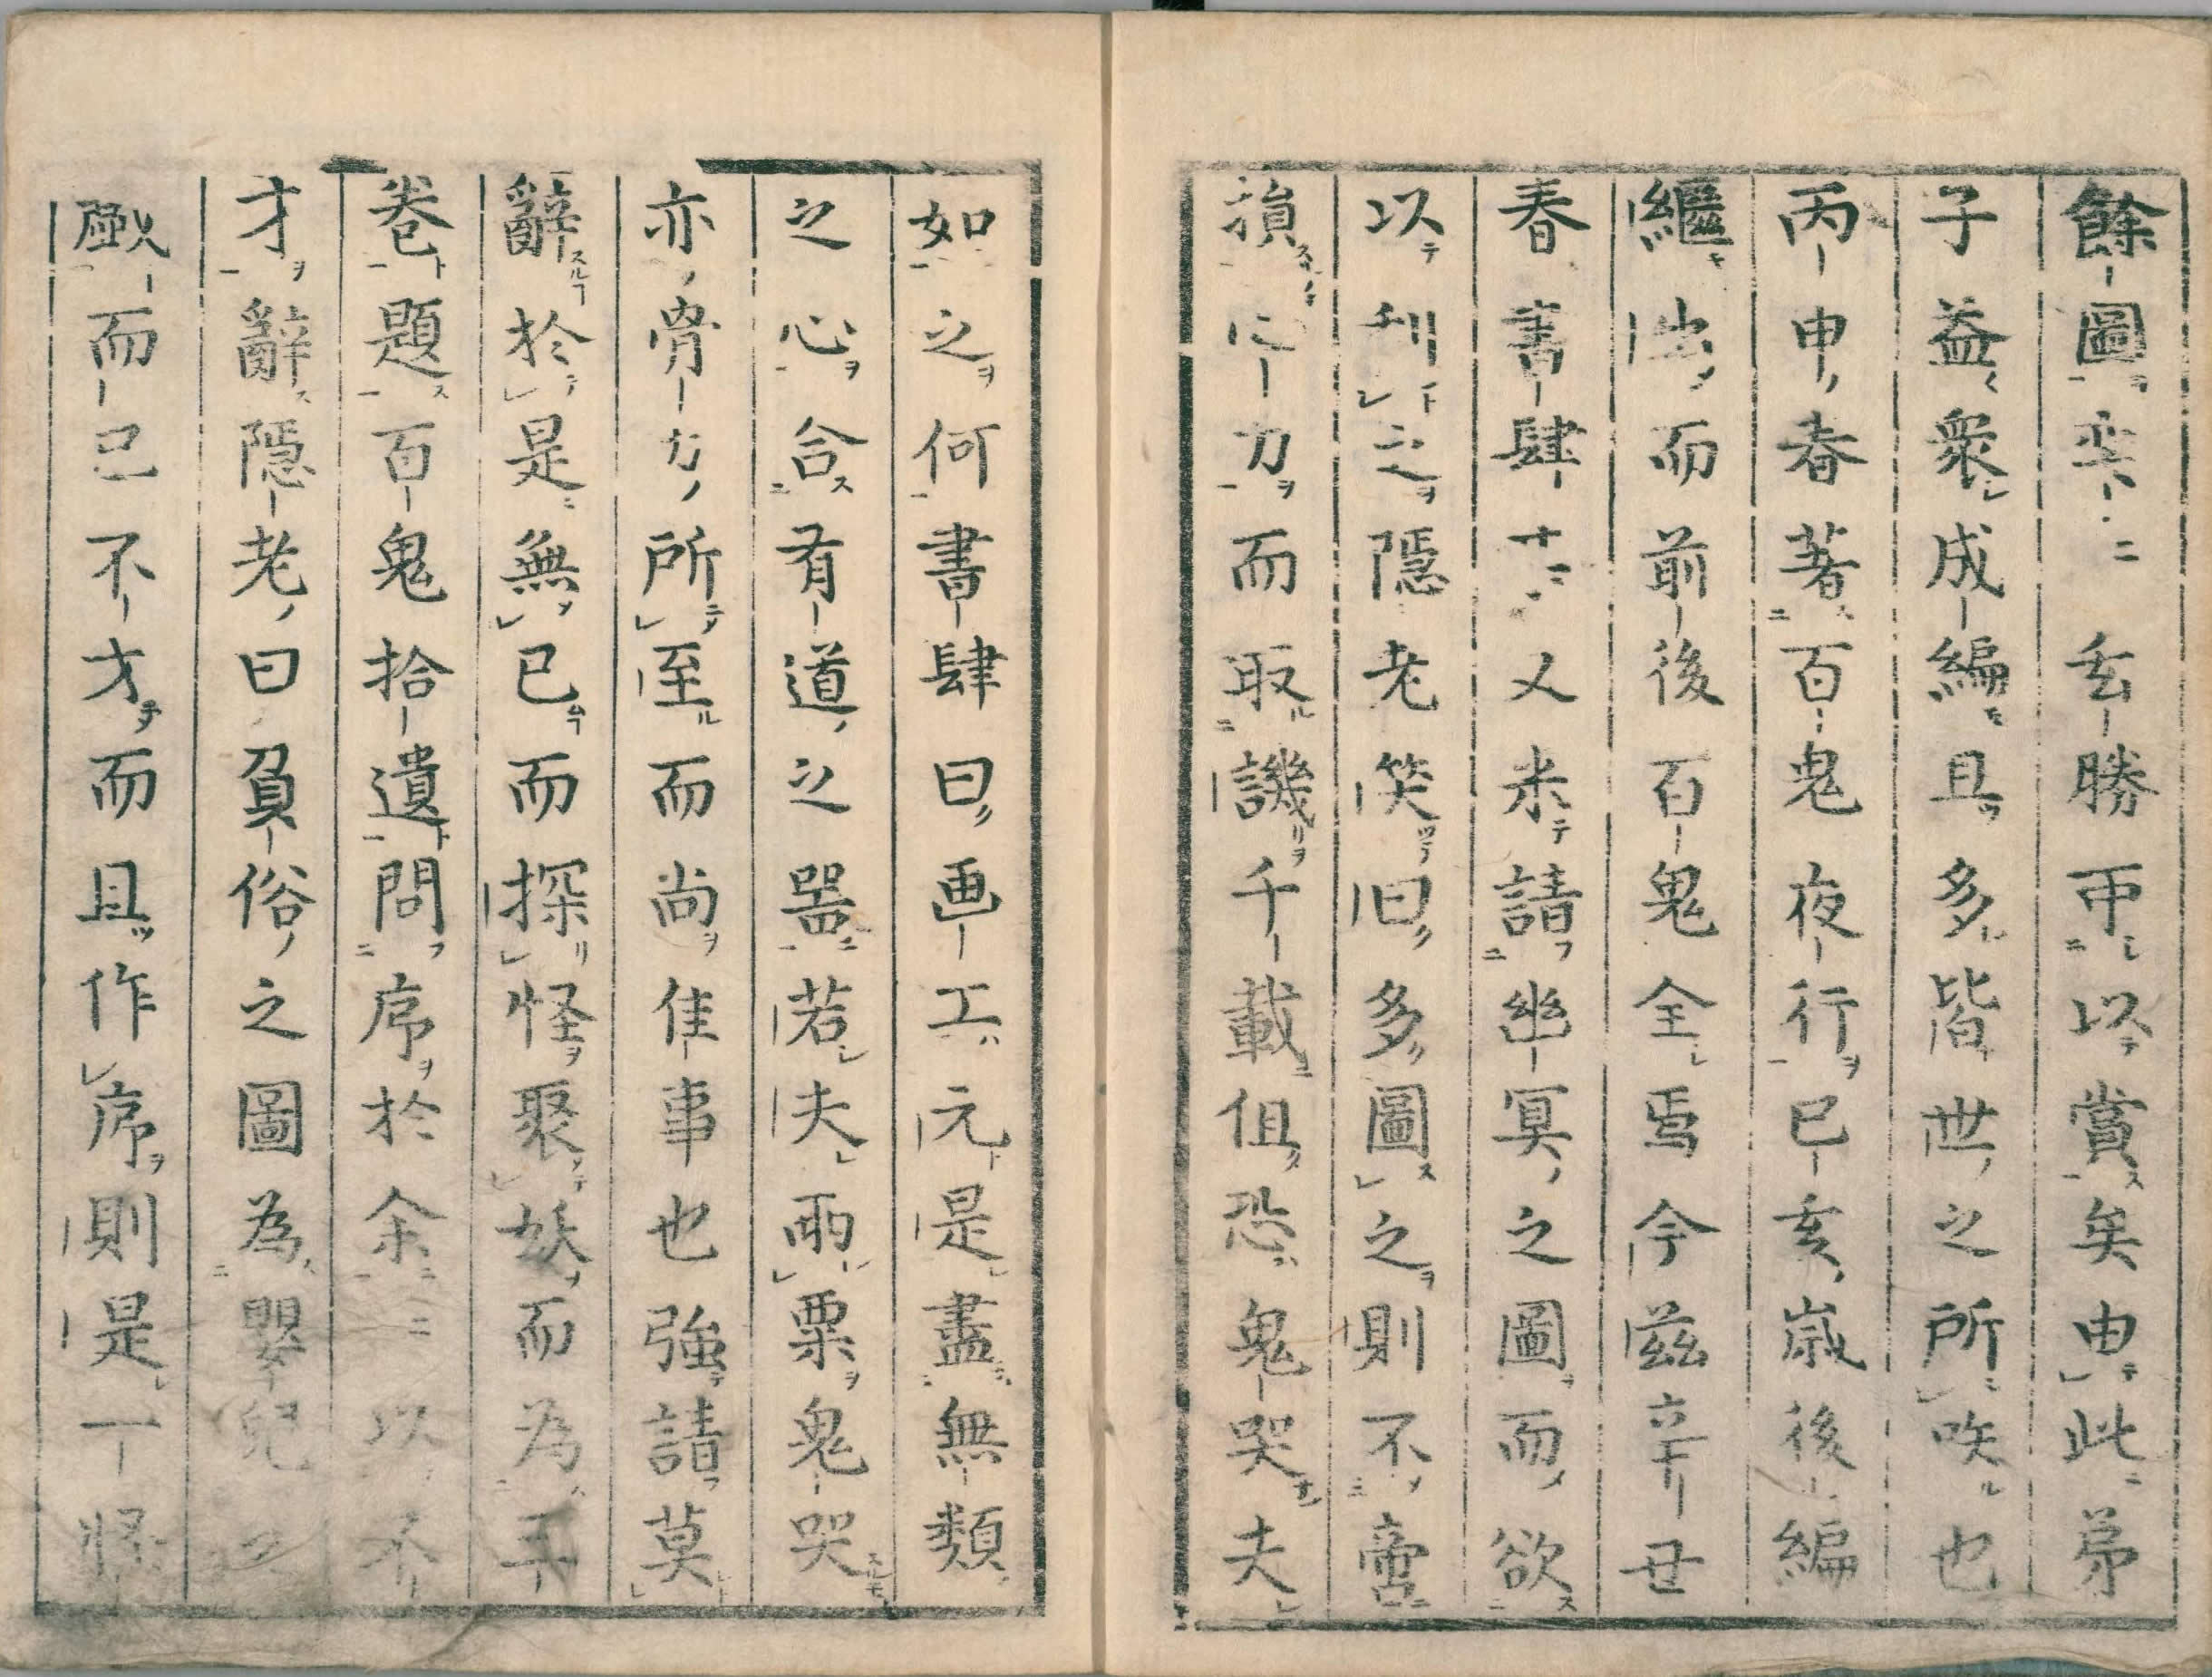 餘圖矣玄勝可以賞矣申此弟
子益衆成編且多皆世之所咲也
丙申春著百鬼夜行已亥歳後編
繼出而前後百鬼全焉今茲辛丑
春書肆又来請幽冥之圖而欲
以利之隠老笑曰多圖之則不啻
損心力而取譏千載但恐鬼哭夫
如之何書肆曰画工元是盡無類
之心合有道之器若夫雨粟鬼哭
亦脅方所至而尚佳事也強請莫
辭於是無已而探怪聚妖而為
巻題百鬼拾遺問序於余以不
才辭隠老曰負俗之圖為嬰兒之
戯而已不才而且作序則是一怪